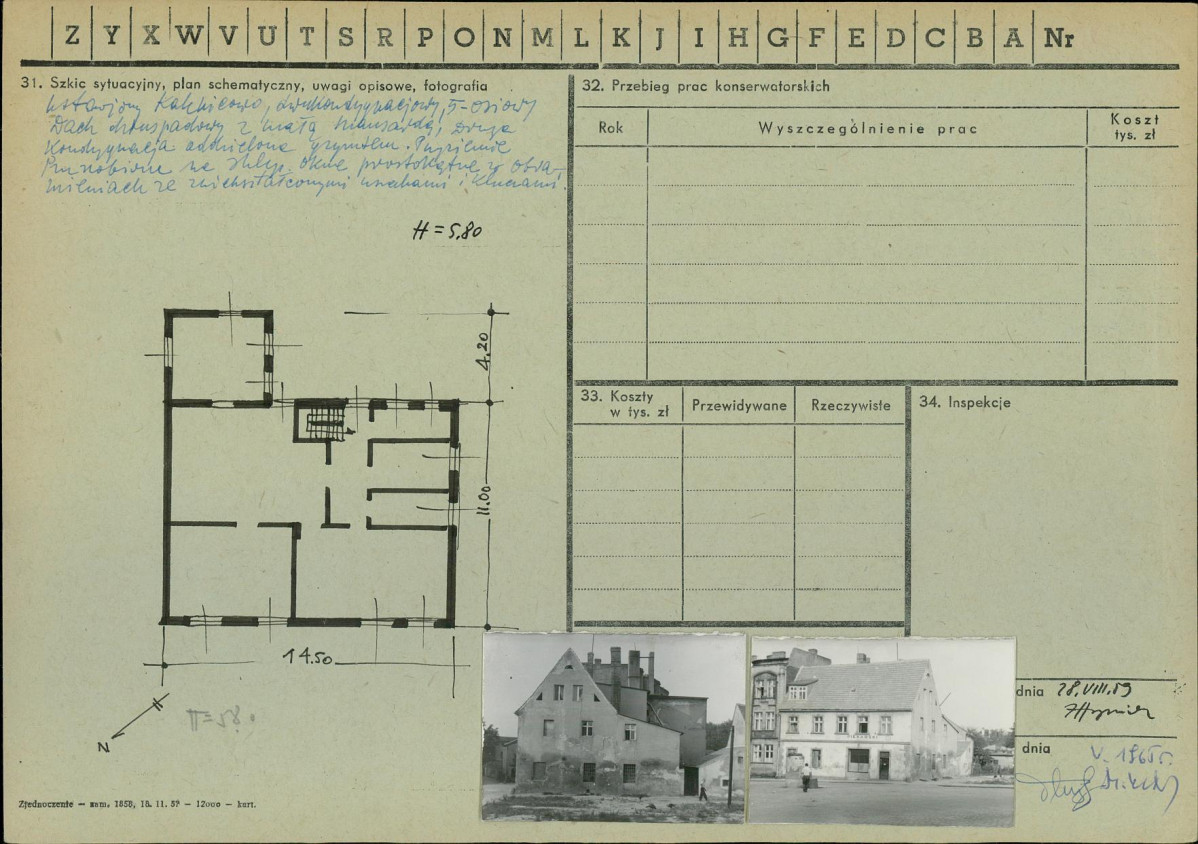 Z Y X W V U T S R P O N M L K J I H G F E D C B A Nr
31. Szkic sytuacyjny, plan schematyczny, uwagi opisowe, fotografia
Kalenicowo, dwukondygnacjowy, 5-osiowy
Dach dwuspadowy z małą mansardą, druga
Kondygnacja oddzielona gzymsem.
Przerobione na sklep. Okna prostokątne w obra-
mieniach ze zniekształconymi uszakami i kluczami.
H = 5,80
4.20
11.00
14.50
N
32. Przebieg prac konserwatorskich
Rok
Wyszczególnienie prac
Koszt
tys. zł
33. Koszty
w tys. zł
Przewidywane
Rzeczywiste
34. Inspekcje
dnia 28.VIII.59
dnia
V. 1965 r.
Zjednoczenie — zam. 1858, 18. 11. 57 — 12000 — kart.